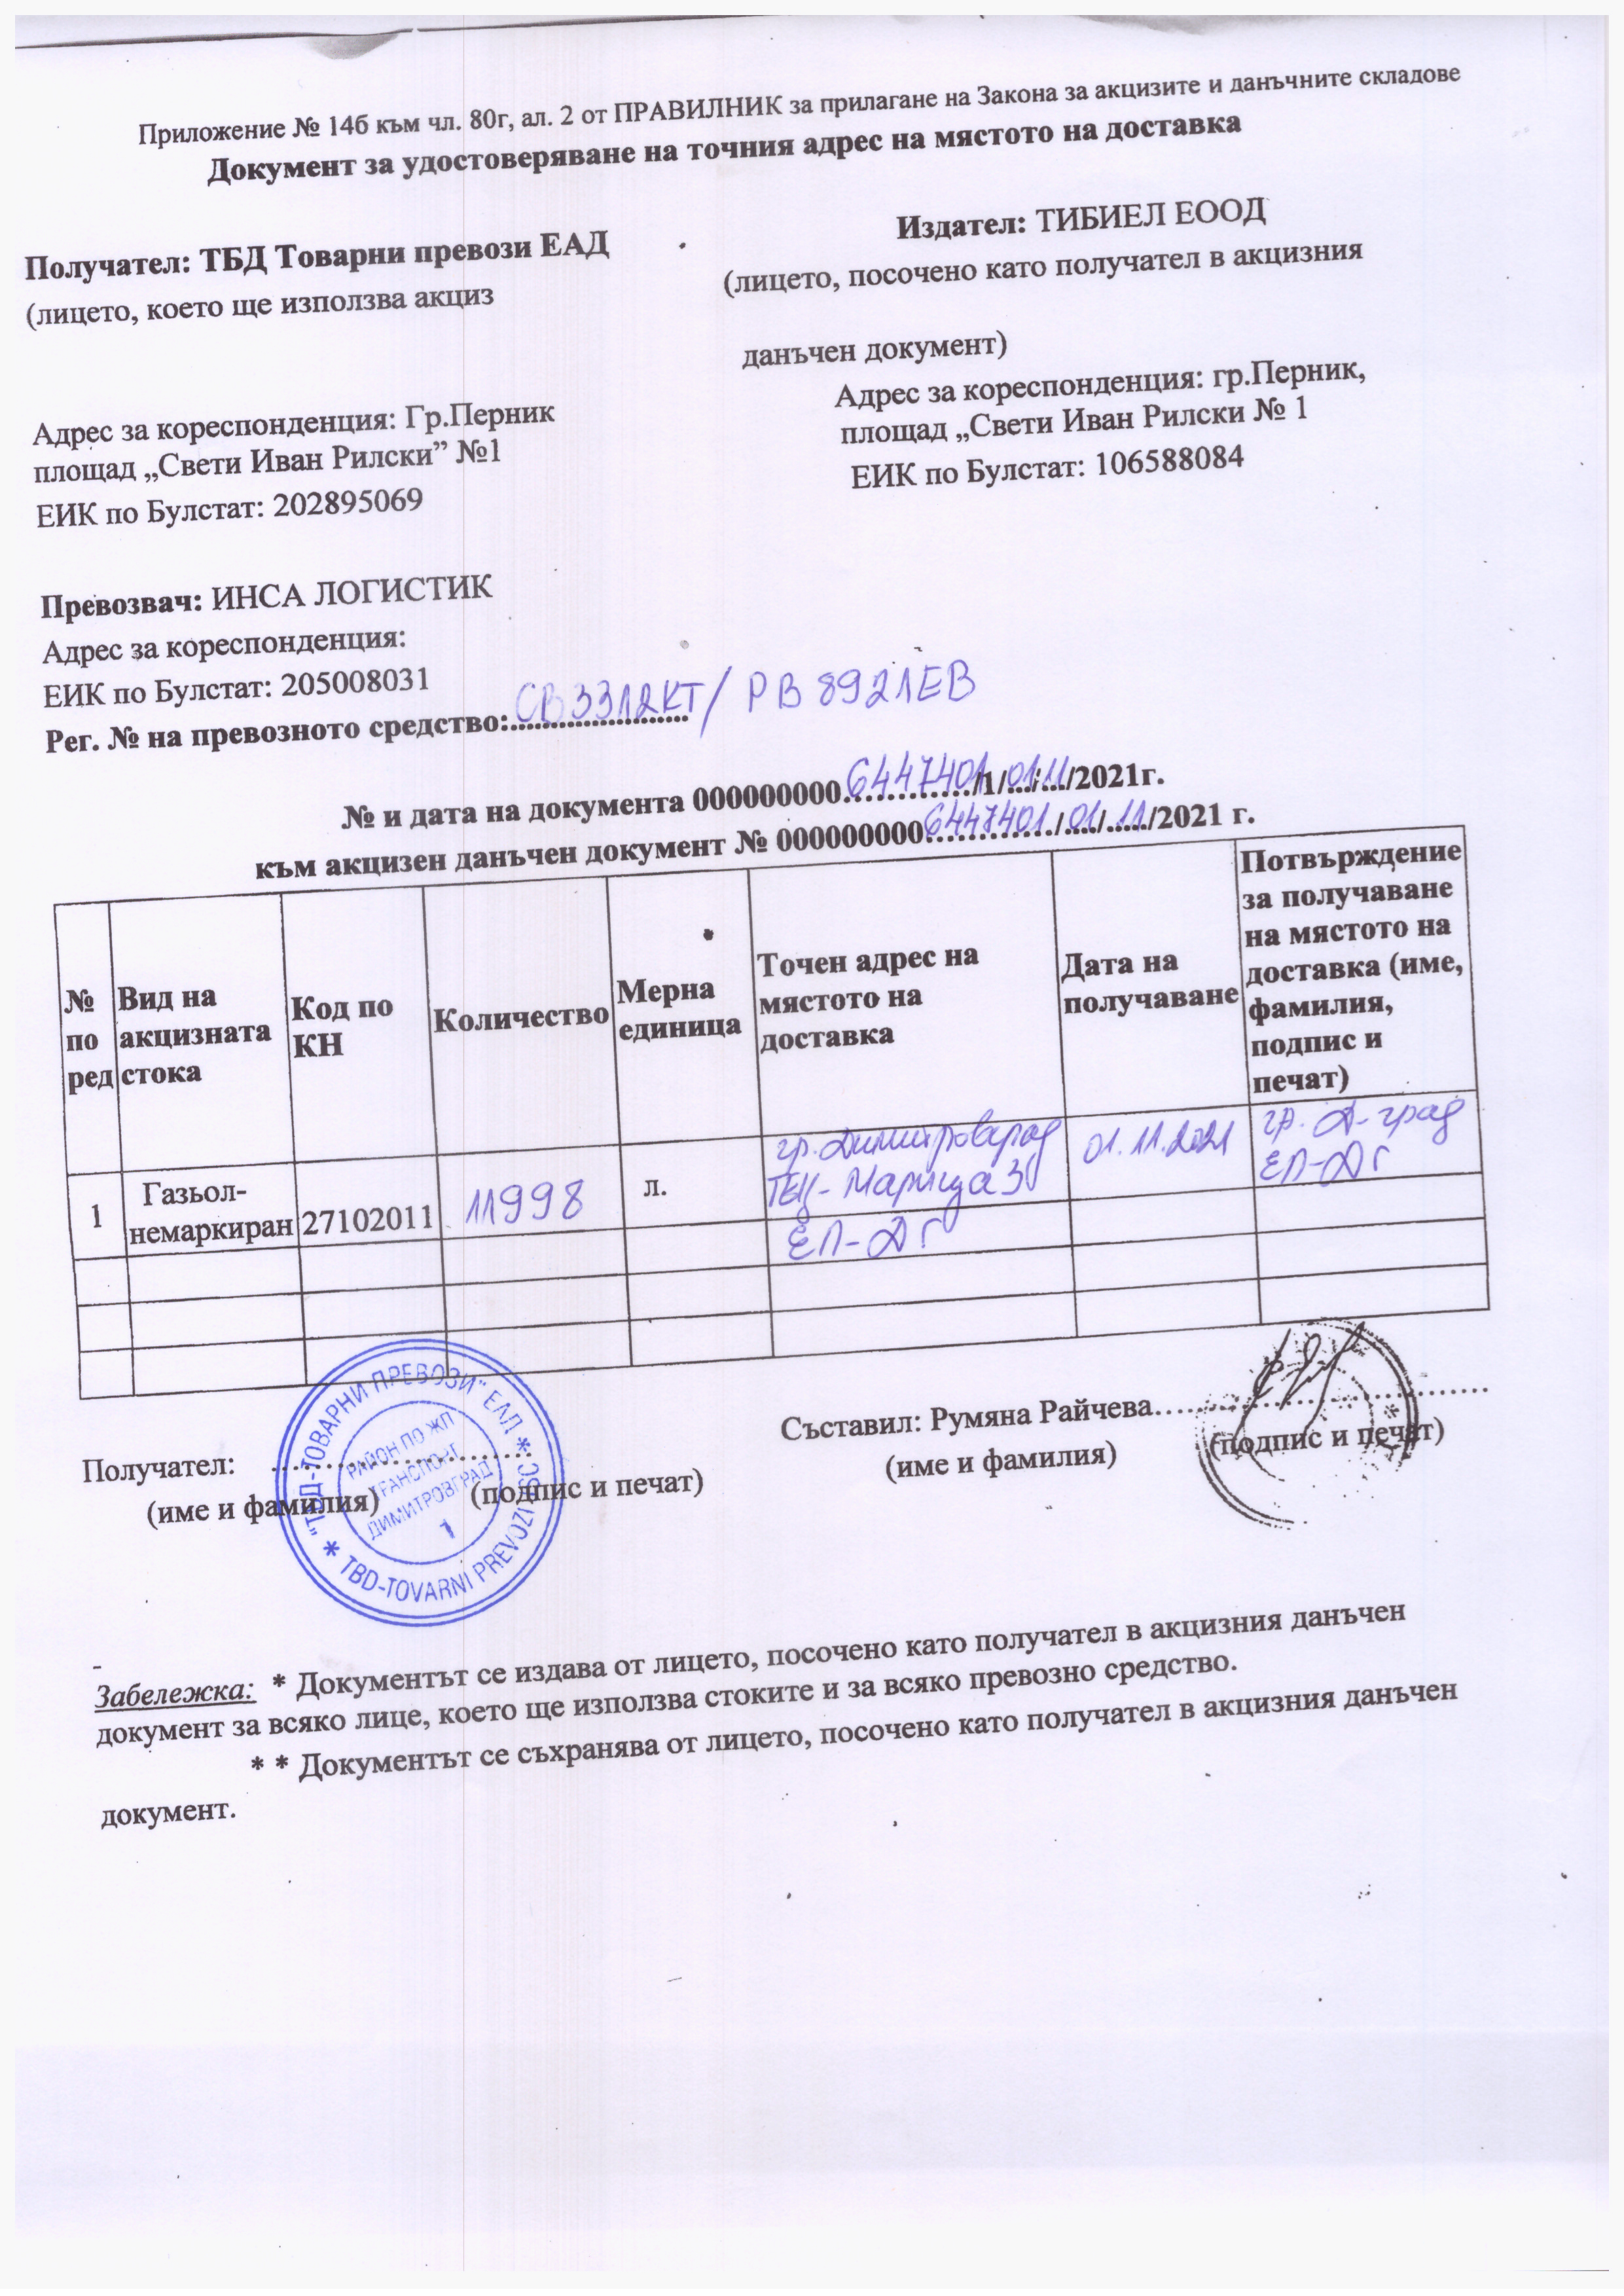 Приложение № 14б към чл. 80г, ал. 2 от ПРАВИЛНИК за прилагане на Закона за акцизите и данъчните складове
Документ за удостоверяване на точния адрес на мястото на доставка
Получател: ТБД Товарни превози ЕАД
(лицето, което ще използва акциз
Адрес за кореспонденция: Гр.Перник
площад „Свети Иван Рилски” №1
ЕИК по Булстат: 202895069
Издател: ТИБИЕЛ ЕООД
(лицето, посочено като получател в акцизния
данъчен документ)
Адрес за кореспонденция: гр.Перник,
площад „Свети Иван Рилски № 1
ЕИК по Булстат: 106588084
Превозвач: ИНСА ЛОГИСТИК
Адрес за кореспонденция:
ЕИК по Булстат: 205008031
Рег. № на превозното средство: СВ3312КТ/ РВ8921ЕВ
№ и дата на документа 000000000 6447401/1/01/11/2021г.
към акцизен данъчен документ № 000000000 6447401/01/11/2021 г.
№ по ред
Вид на акцизната стока
Код по КН
Количество
Мерна единица
Точен адрес на мястото на доставка
Дата на получаване
Потвърждение за получаване на мястото на доставка (име, фамилия, подпис и печат)
1
Газьол-немаркиран
27102011
11998
л.
гр. Димитровград
ТЕЦ-Марица 3
ЕП-ДГ
01.11.2021
гр. Д-град
ЕП-ДГ
Получател: ..........................
(име и фамилия) (подпис и печат)
Съставил: Румяна Райчева..........................
(име и фамилия) (подпис и печат)
"ТБД-ТОВАРНИ ПРЕВОЗИ" ЕАД * TBD-TOVARNI PREVOZI JSC *
РАЙОН ПО ЖП
ТРАНСПОРТ
ДИМИТРОВГРАД
1
Забележка: * Документът се издава от лицето, посочено като получател в акцизния данъчен
документ за всяко лице, което ще използва стоките и за всяко превозно средство.
* * Документът се съхранява от лицето, посочено като получател в акцизния данъчен
документ.